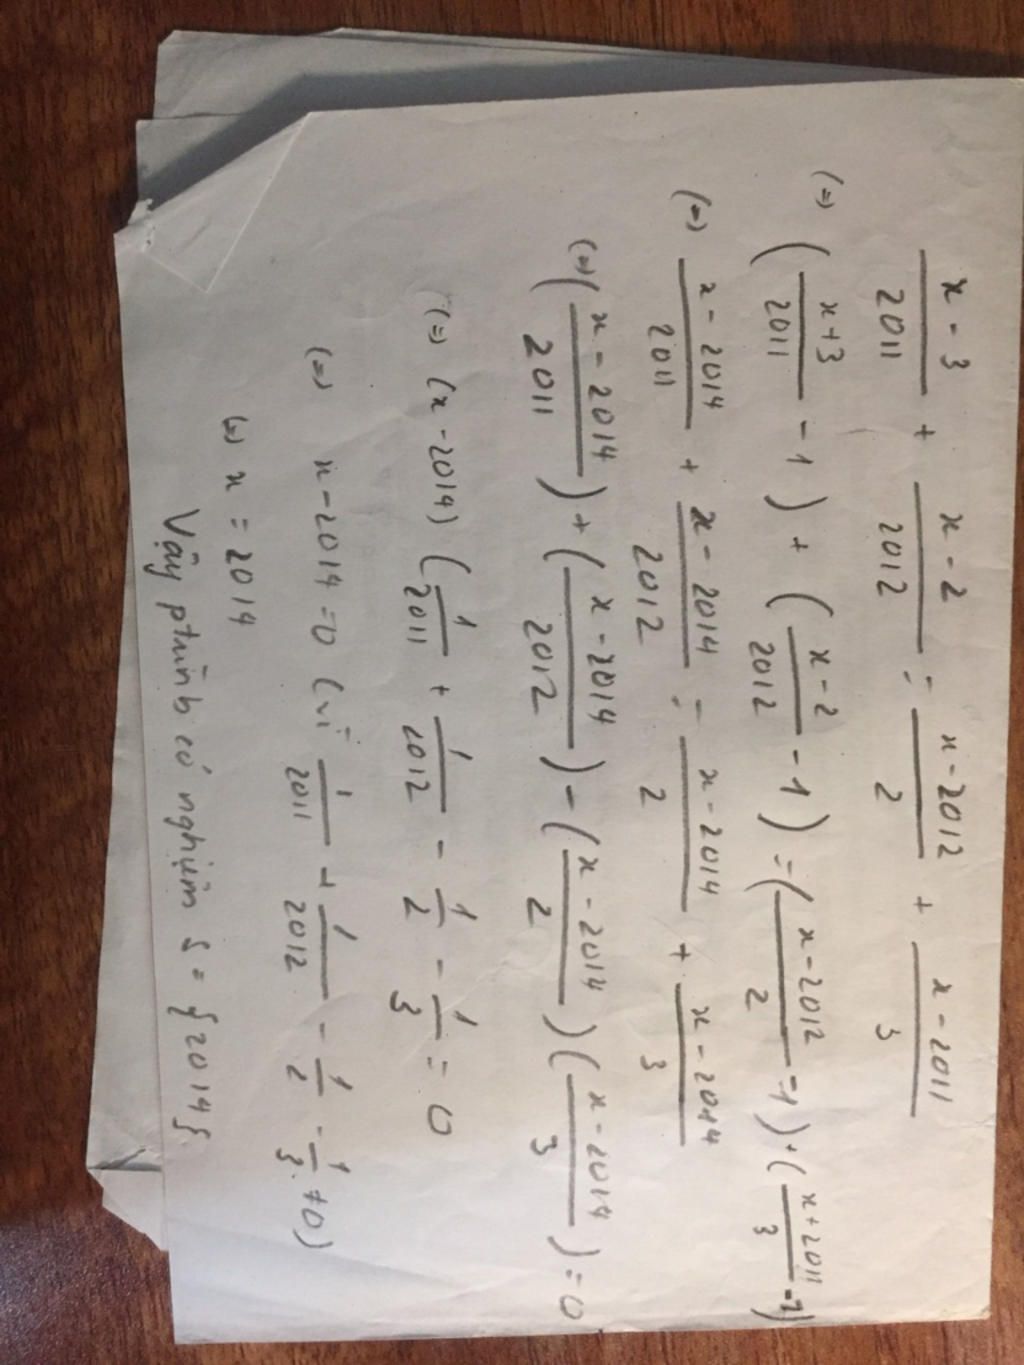 x - 3/2011 + x - 2/2012 = x - 2012/2 + x - 2011/3
(=) (x + 3/2011 - 1) + (x - 2/2012 - 1) = (x - 2012/2 - 1) + (x + 2011/3 - 1)
(=) x - 2014/2011 + x - 2014/2012 = x - 2014/2 + x - 2014/3
(=) (x - 2014/2011) + (x - 2014/2012) - (x - 2014/2) (x - 2014/3) = 0
(=) (x - 2014) (1/2011 + 1/2012 - 1/2 - 1/3 = 0
(=) x - 2014 = 0 (vì 1/2011 + 1/2012 - 1/2 - 1/3 ≠ 0)
(=) x = 2014
Vậy ptrình có nghiệm S = {2014}